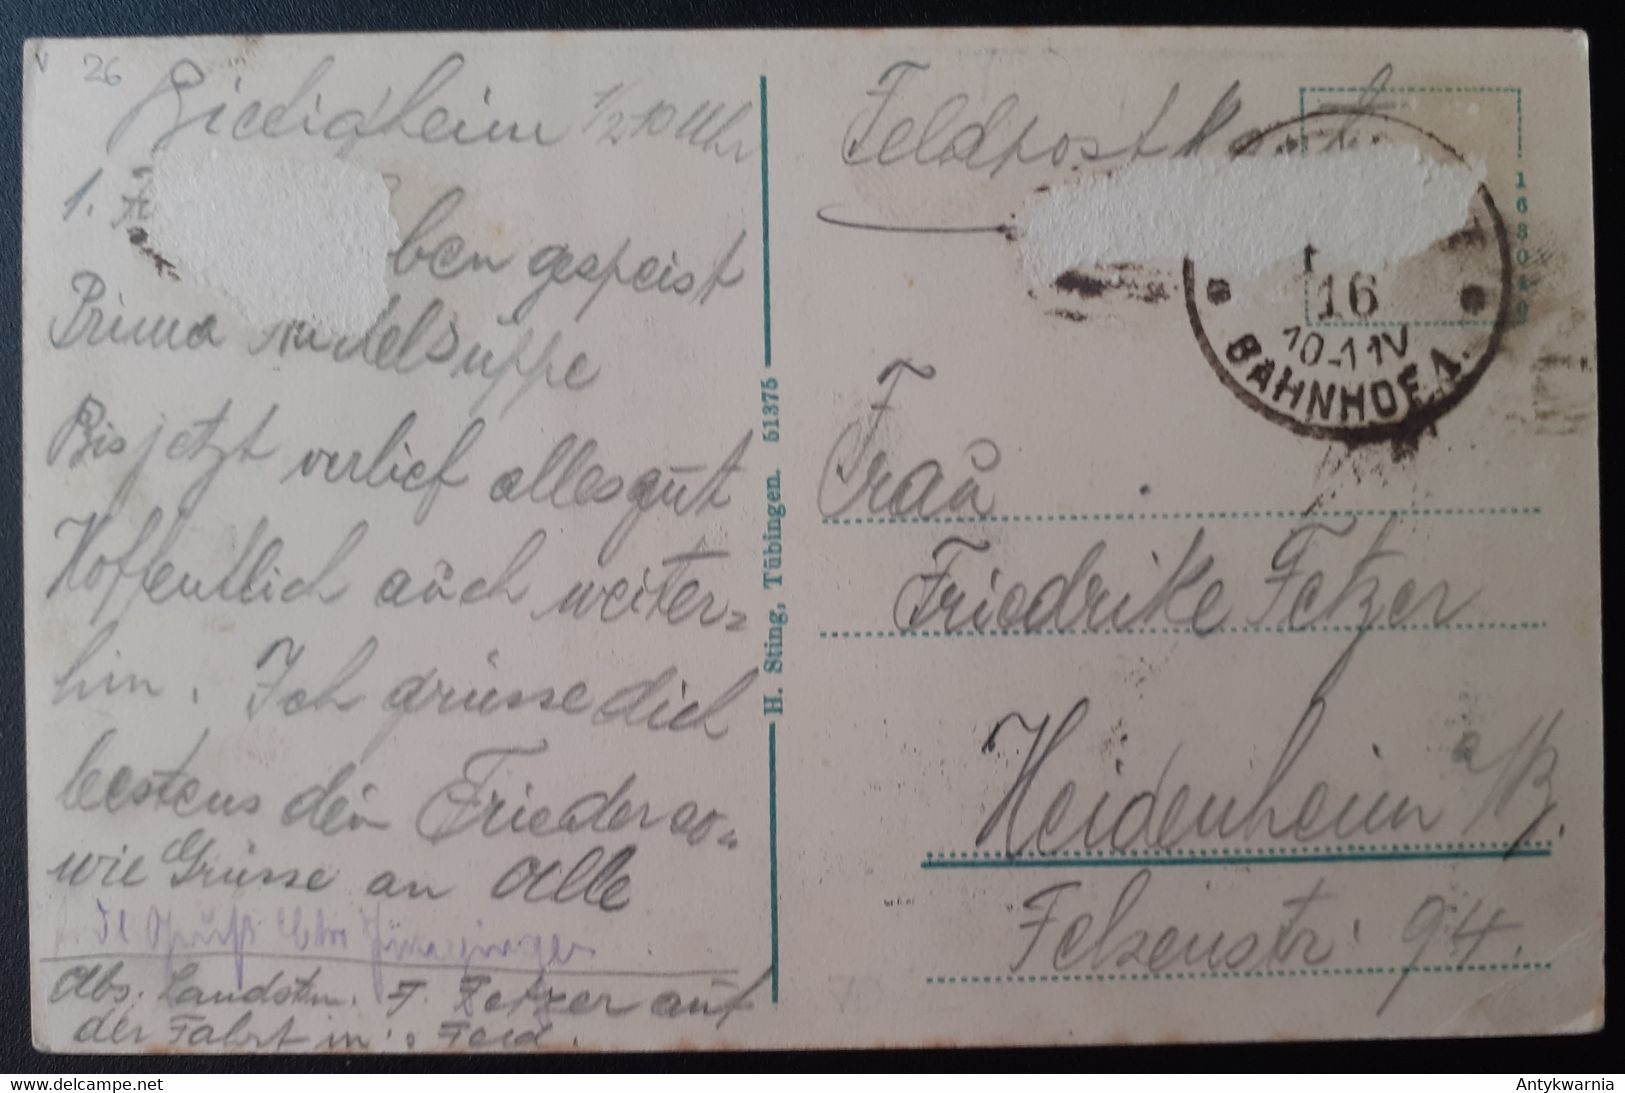 26
Bietigheim 1/2 10 Uhr
1. ben gespeist
Prima Nudelsuppe
Bis jetzt verlief alles gut
Hoffentlich auch weiter=
hin. Ich grüsse dich
bestens dein Frieder so=
wie Grüsse an Alle
Abs. Landstm. F. Fetzer auf
der Fahrt in's Feld.
H. Sting, Tübingen. 51375
Feldpostkart
16
10-11V
BAHNHOF 1.
Frau
Friedrike Fetzer
Heidenheim a/B.
Felsenstr. 94.
Antykwarnia